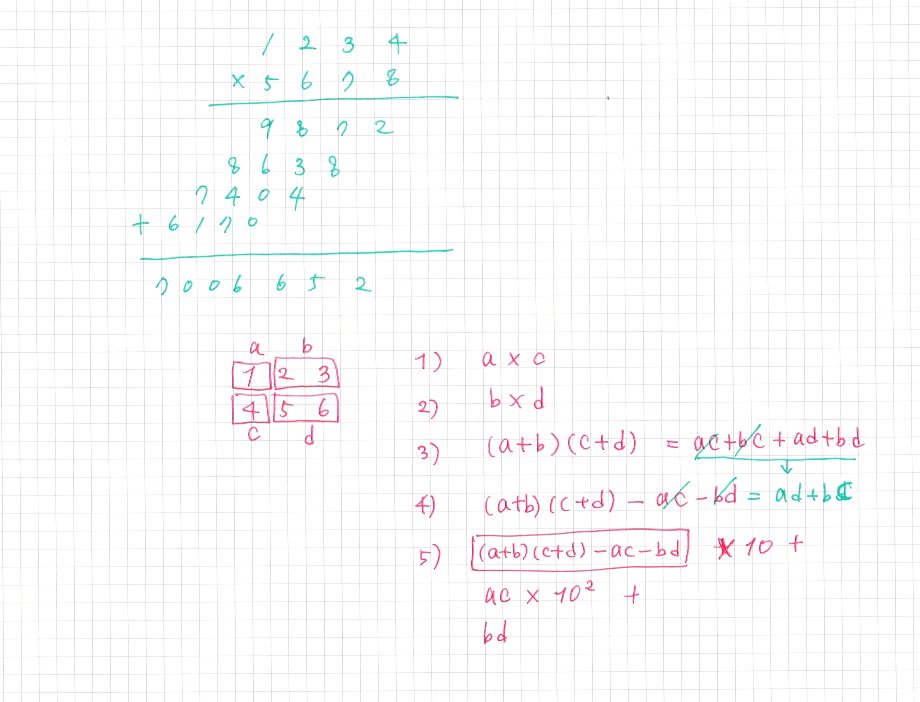 1 2 3 4
x 5 6 7 8
9 8 7 2
8 6 3 8
7 4 0 4
+ 6 1 7 0
7 0 0 6 6 5 2
a b
1 2 3
4 5 6
c d
1) a x c
2) b x d
3) (a+b)(c+d) = ac+bc+ad+bd
4) (a+b)(c+d) - ac - bd = ad+bc
5) (a+b)(c+d) - ac - bd x 10 +
ac x 10² +
bd